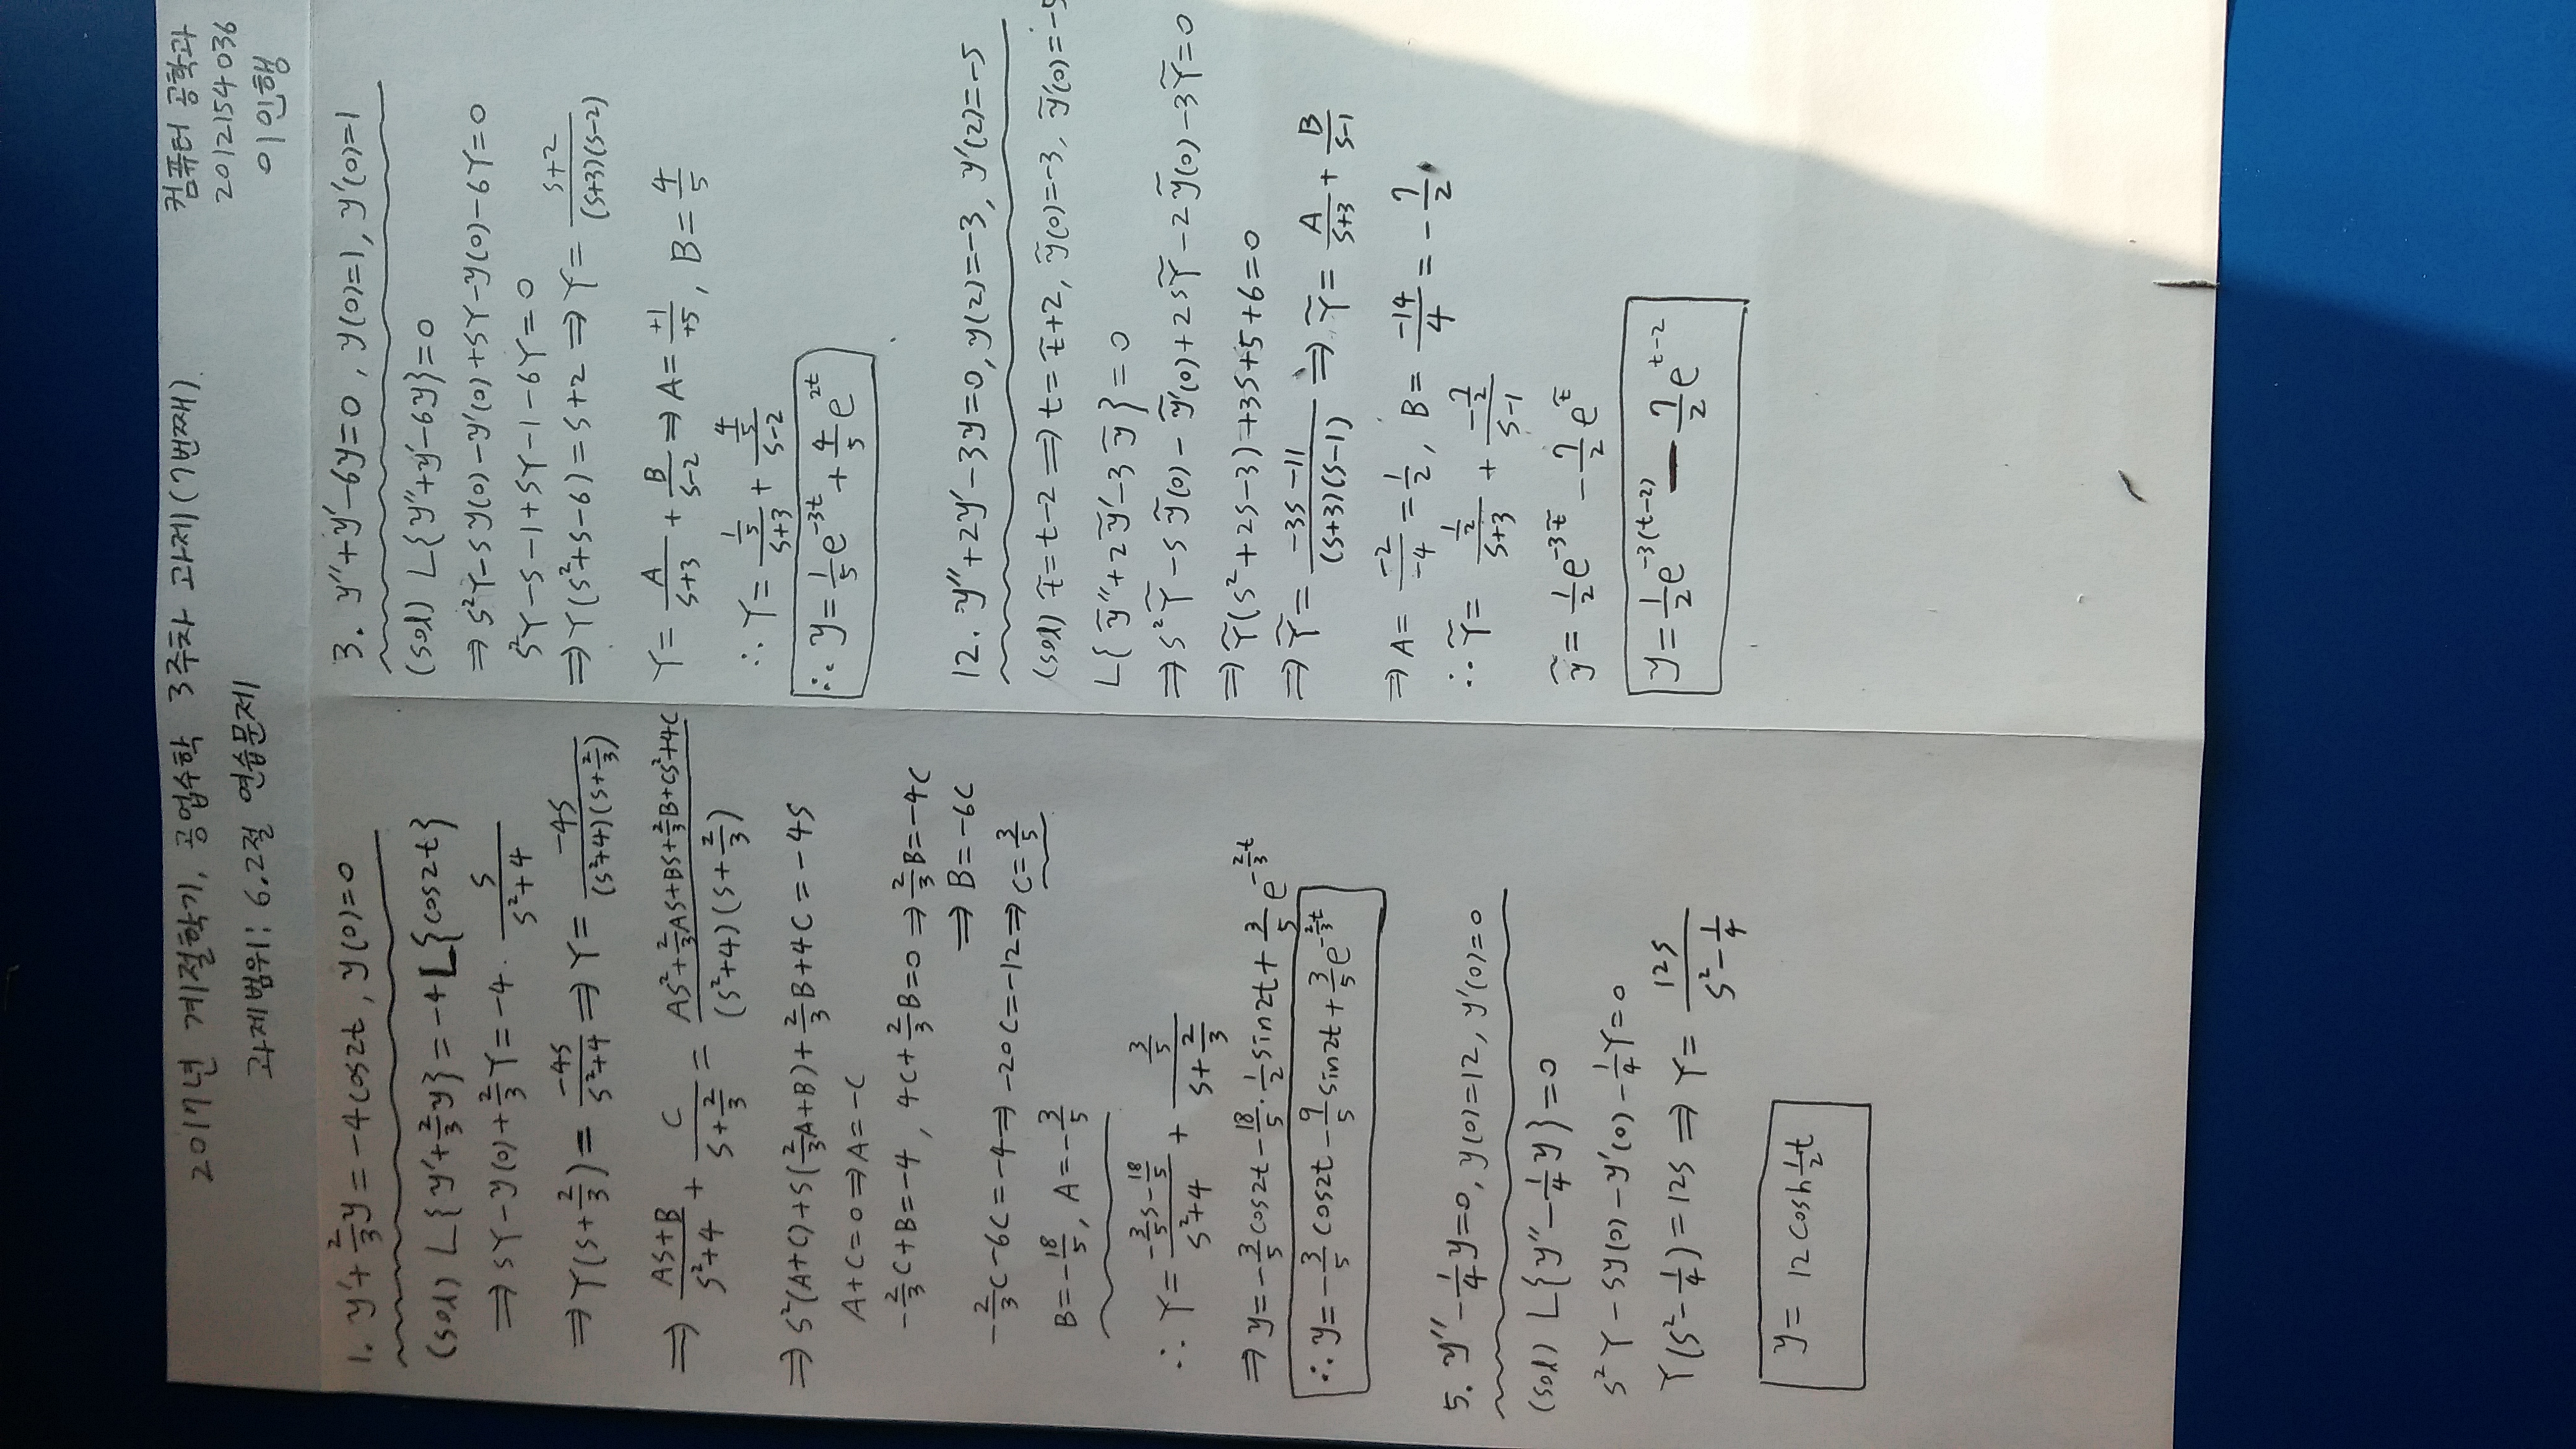 2017년 계절학기, 공업수학 3주차 과제(7번째).
과제범위: 6.2절 연습문제
컴퓨터 공학과
2012154036
이인행
1. y′+2/3y=-4cos2t, y(0)=0
(sol) L{y′+2/3y}=-4L{cos2t}
⇒ sY-y(0)+2/3Y=-4· s/(s²+4)
⇒Y(s+2/3)= -4s/(s²+4) ⇒ Y= -4s/((s²+4)(s+2/3))
⇒ (As+B)/(s²+4) + C/(s+2/3) = (As²+2/3As+Bs+2/3B+Cs²+4C)/((s²+4)(s+2/3))
⇒ s²(A+C)+s(2/3A+B)+2/3B+4C=-4s
A+C=0⇒A=-C
-2/3C+B=-4, 4C+2/3B=0 ⇒ 2/3B=-4C
⇒ B=-6C
-2/3C-6C=-4⇒ -20C=-12⇒ C=3/5
B=-18/5, A=-3/5
∴ Y= (-3/5s-18/5)/(s²+4) + (3/5)/(s+2/3)
⇒ y=-3/5cos2t-18/5·1/2sin2t+3/5e^(-2/3t)
∴ y=-3/5cos2t-9/5sin2t+3/5e^(-2/3t)
5. y″-1/4y=0, y(0)=12, y′(0)=0
(sol) L{y″-1/4y}=0
s²Y-sy(0)-y′(0)-1/4Y=0
Y(s²-1/4)=12s ⇒ Y= 12s/(s²-1/4)
y= 12cosh1/2t
3. y″+y′-6y=0, y(0)=1, y′(0)=1
(sol) L{y″+y′-6y}=0
⇒ s²Y-sy(0)-y′(0)+sY-y(0)-6Y=0
s²Y-s-1+sY-1-6Y=0
⇒ Y(s²+s-6)=s+2 ⇒ Y= (s+2)/((s+3)(s-2))
Y= A/(s+3) + B/(s-2) ⇒ A= +1/+5, B=4/5
∴ Y= (1/5)/(s+3) + (4/5)/(s-2)
∴ y=1/5e^(-3t)+4/5e^(2t)
12. y″+2y′-3y=0, y(2)=-3, y′(2)=-5
(sol) t̃=t-2 ⇒ t=t̃+2, ỹ(0)=-3, ỹ′(0)=-5
L{ỹ″+2ỹ′-3ỹ}=0
⇒ s²Ỹ-sỹ(0)-ỹ′(0)+2sỸ-2ỹ(0)-3Ỹ=0
⇒ Ỹ(s²+2s-3)+3s+5+6=0
⇒ Ỹ= (-3s-11)/((s+3)(s-1)) ⇒ Ỹ= A/(s+3) + B/(s-1)
⇒ A= -2/-4 =1/2, B= -14/4 = -7/2
∴ Ỹ= (1/2)/(s+3) + (-7/2)/(s-1)
ỹ=1/2e^(-3t̃)-7/2e^(t̃)
y=1/2e^(-3(t-2))-7/2e^(t-2)